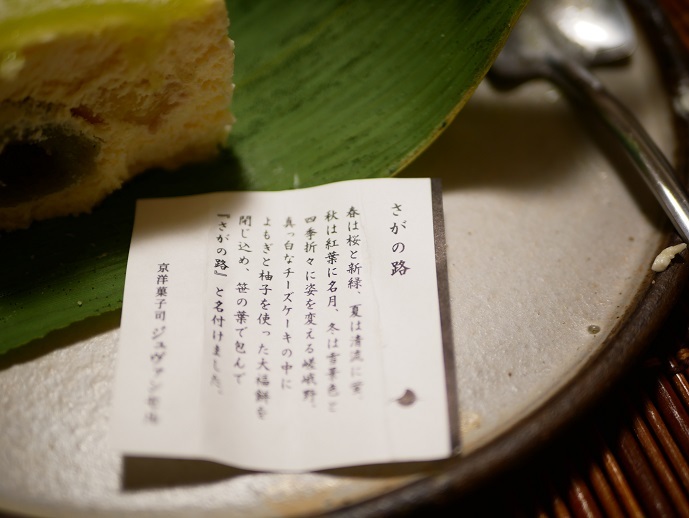 さがの路
春は桜と新緑、夏は清流に蛍、
秋は紅葉に名月、冬は雪景色と
四季折々に姿を変える嵯峨野、
真っ白なチーズケーキの中に
よもぎと柚子を使った大福餅を
閉じ込め、笹の葉で包んで
『さがの路』と名付けました。
京洋菓子司 ジュヴァンセル